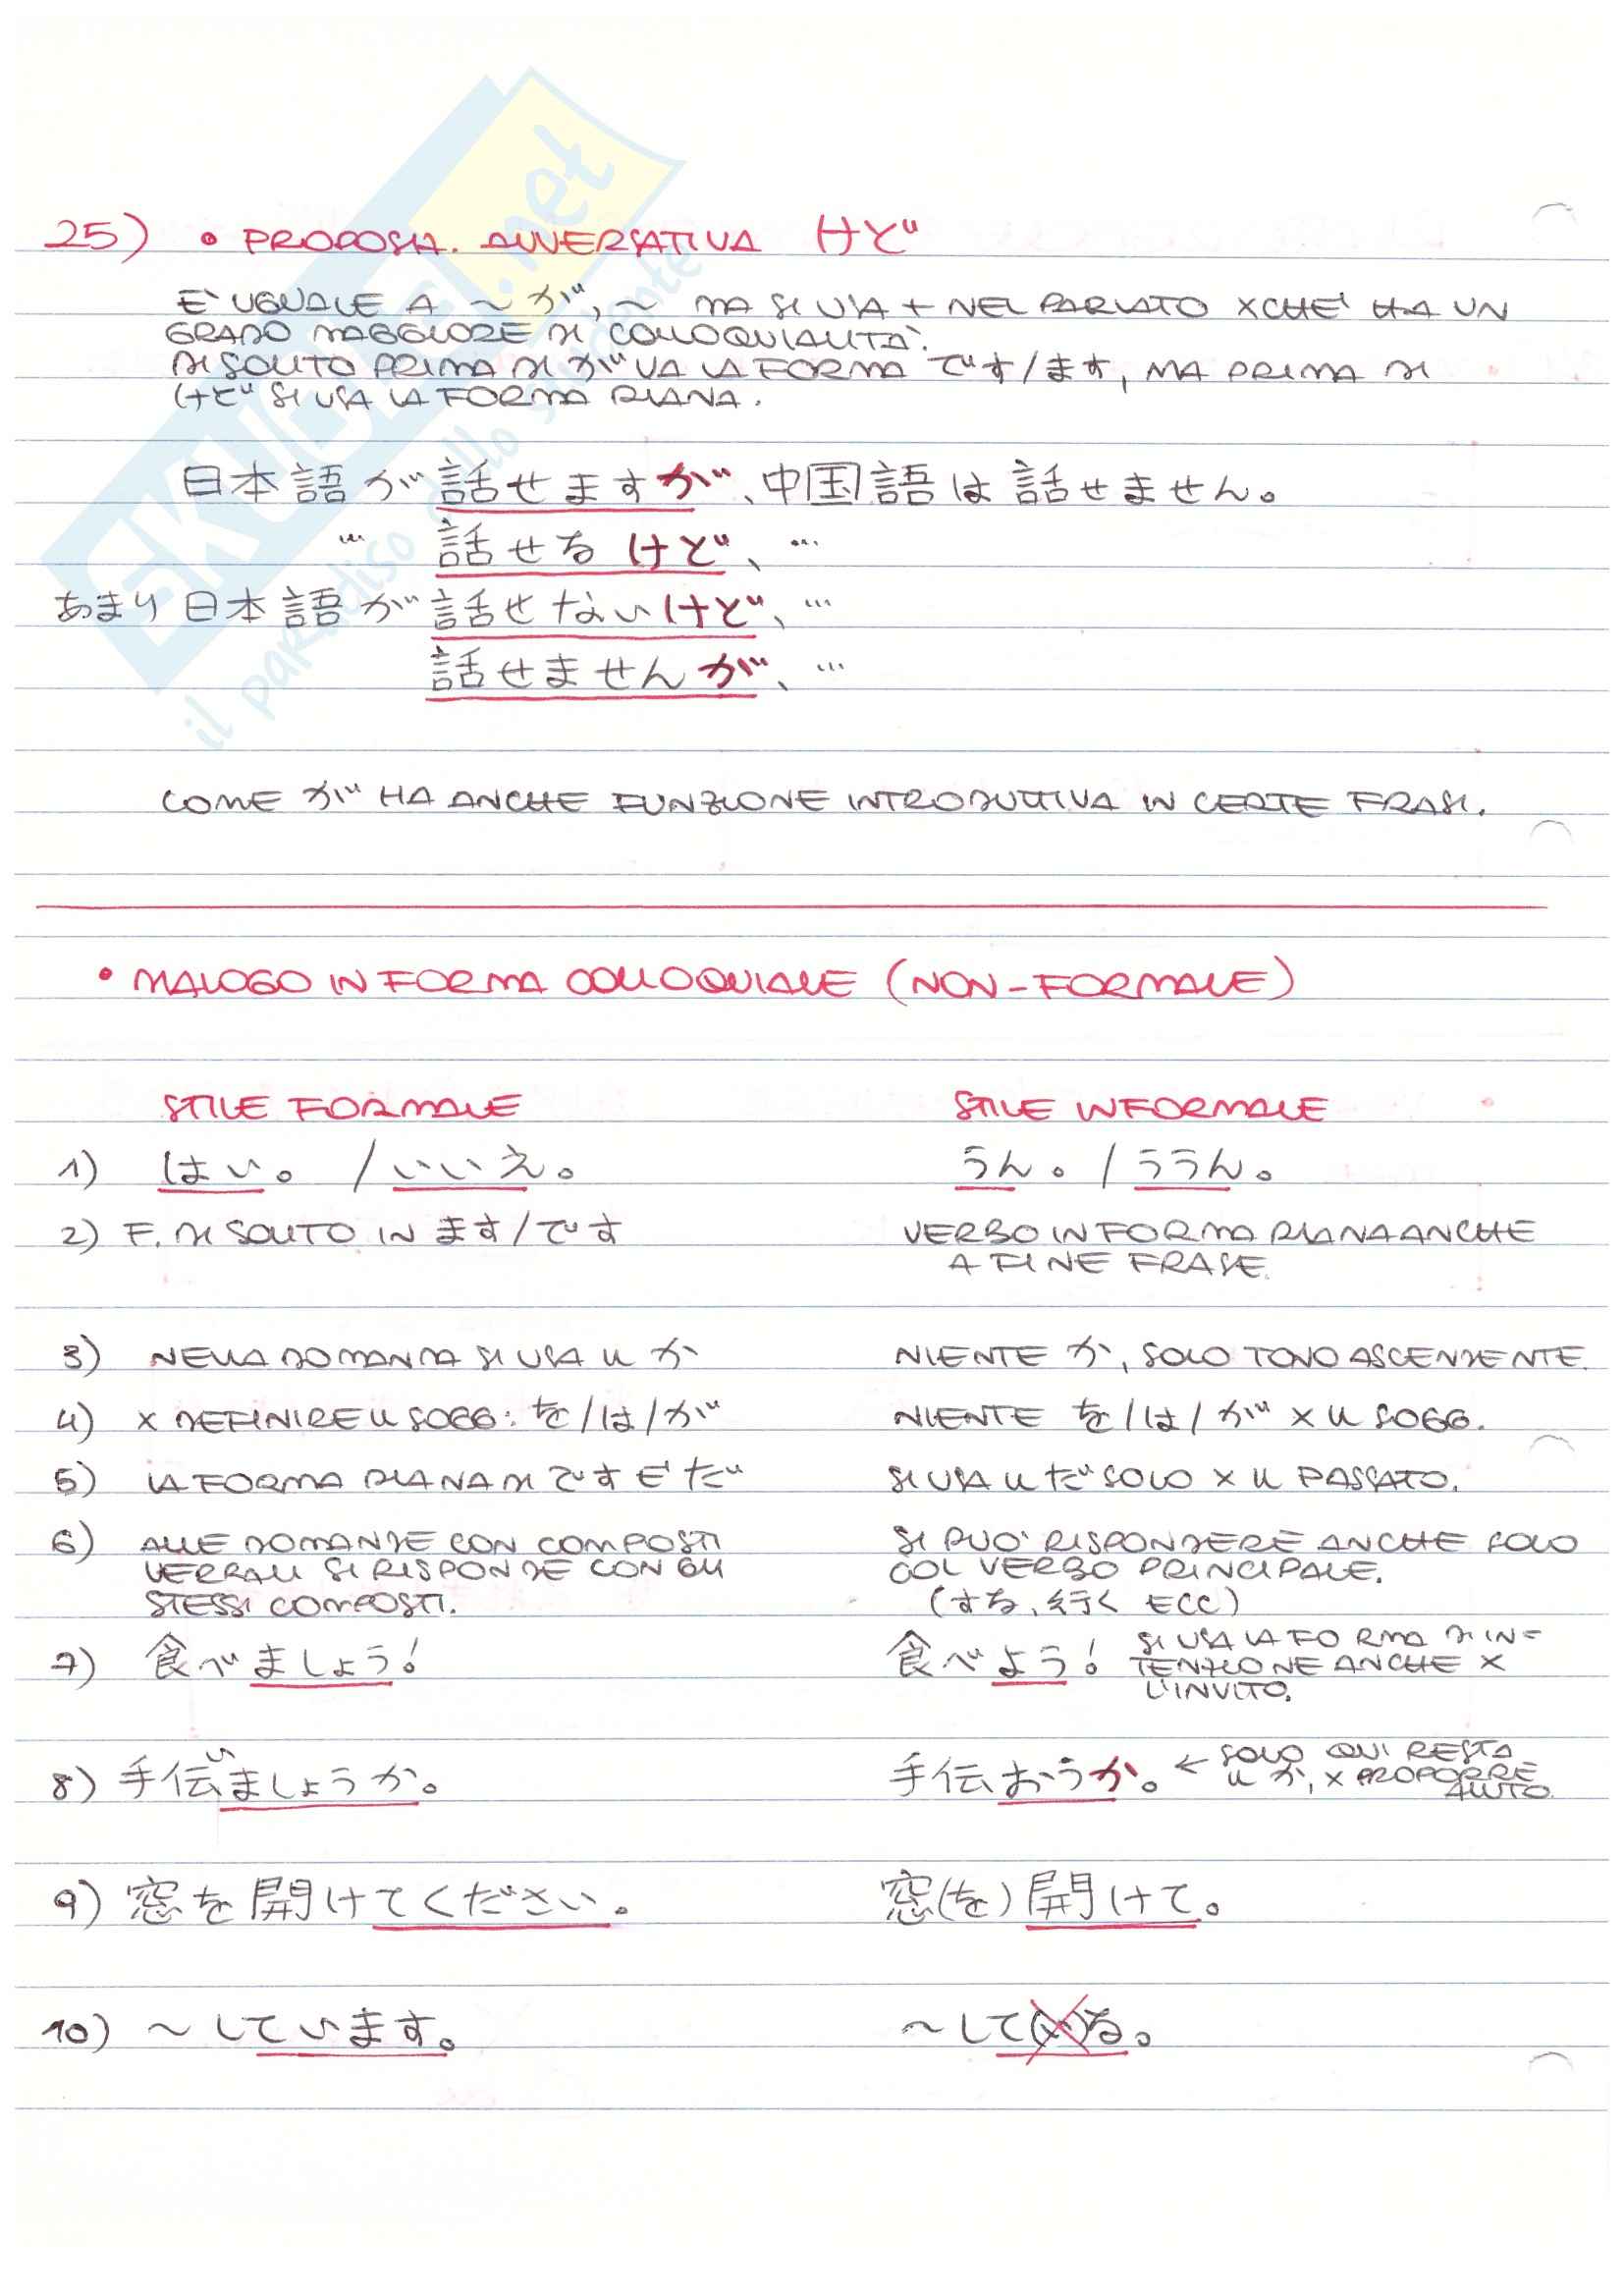 25) • PROPOSIZ. AVVERSATIVA けど
E' UGUALE A ～が, ～ MA SI USA + NEL PARLATO XCHE' HA UN
GRADO MAGGIORE DI COLLOQUIALITA'.
DI SOLITO PRIMA DI が VA LA FORMA です/ます, MA PRIMA DI
けど SI USA LA FORMA PIANA.
日本語が話せますが、中国語は話せません。
… 話せるけど、…
あまり日本語が話せないけど、…
話せませんが、…
COME が HA ANCHE FUNZIONE INTRODUTTIVA IN CERTE FRASI.
• DIALOGO IN FORMA COLLOQUIALE (NON-FORMALE)
STILE FORMALE STILE INFORMALE
1) はい。/いいえ。 うん。/ううん。
2) F. DI SOLITO IN ます/です VERBO IN FORMA PIANA ANCHE
A FINE FRASE.
3) NELLA DOMANDA SI USA IL か NIENTE か, SOLO TONO ASCENDENTE.
4) X DEFINIRE IL SOGG: を/は/が NIENTE を/は/が X IL SOGG.
5) LA FORMA PIANA DI です E' だ SI USA IL だ SOLO X IL PASSATO.
6) ALLE DOMANDE CON COMPOSTI SI PUO' RISPONDERE ANCHE SOLO
VERBALI SI RISPONDE CON GLI COL VERBO PRINCIPALE.
STESSI COMPOSTI. (する、行く ECC)
7) 食べましょう! 食べよう! SI USA LA FORMA DI IN-
TENZIONE ANCHE X
L'INVITO.
8) 手伝いましょうか。 手伝おうか。 ← SOLO QUI RESTA
IL か, X PROPORRE
AIUTO.
9) 窓を開けてください。 窓(を)開けて。
10) ～しています。 ～して(い)る。
SKUOLA.net
il paradiso dello studente